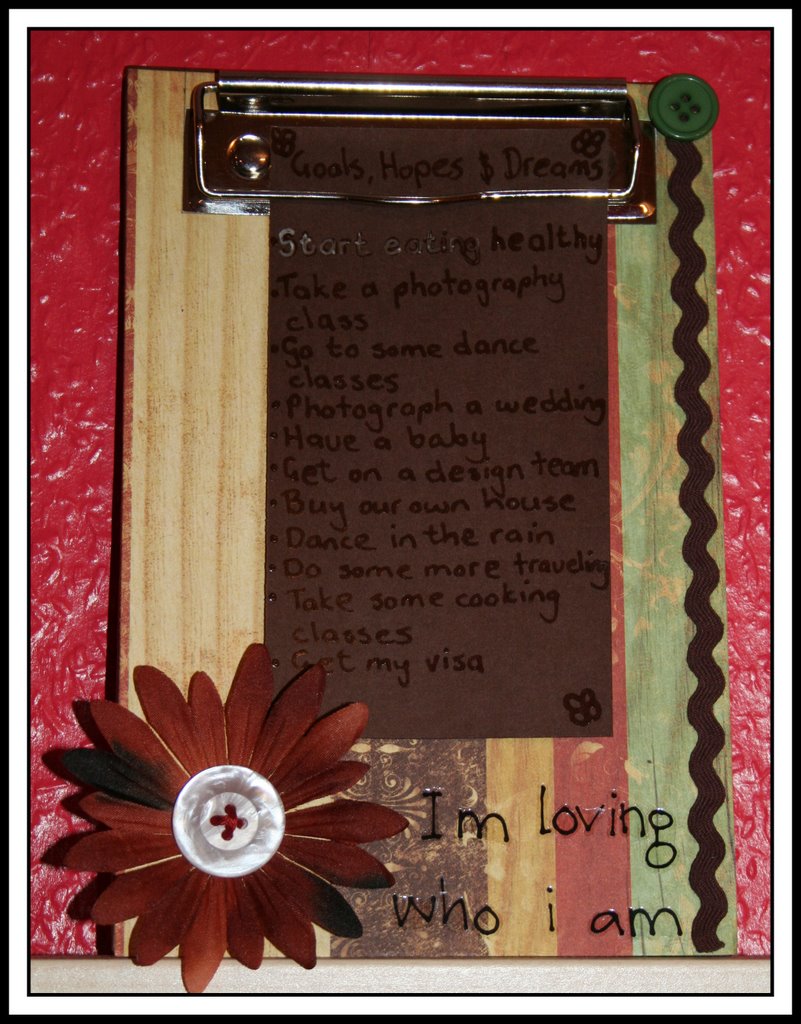 Goals, Hopes & Dreams
• Start eating healthy
• Take a photography
class
• Go to some dance
classes
• Photograph a wedding
• Have a baby
• Get on a design team
• Buy our own house
• Dance in the rain
• Do some more traveling
• Take some cooking
classes
• Get my visa
Im loving
who i am